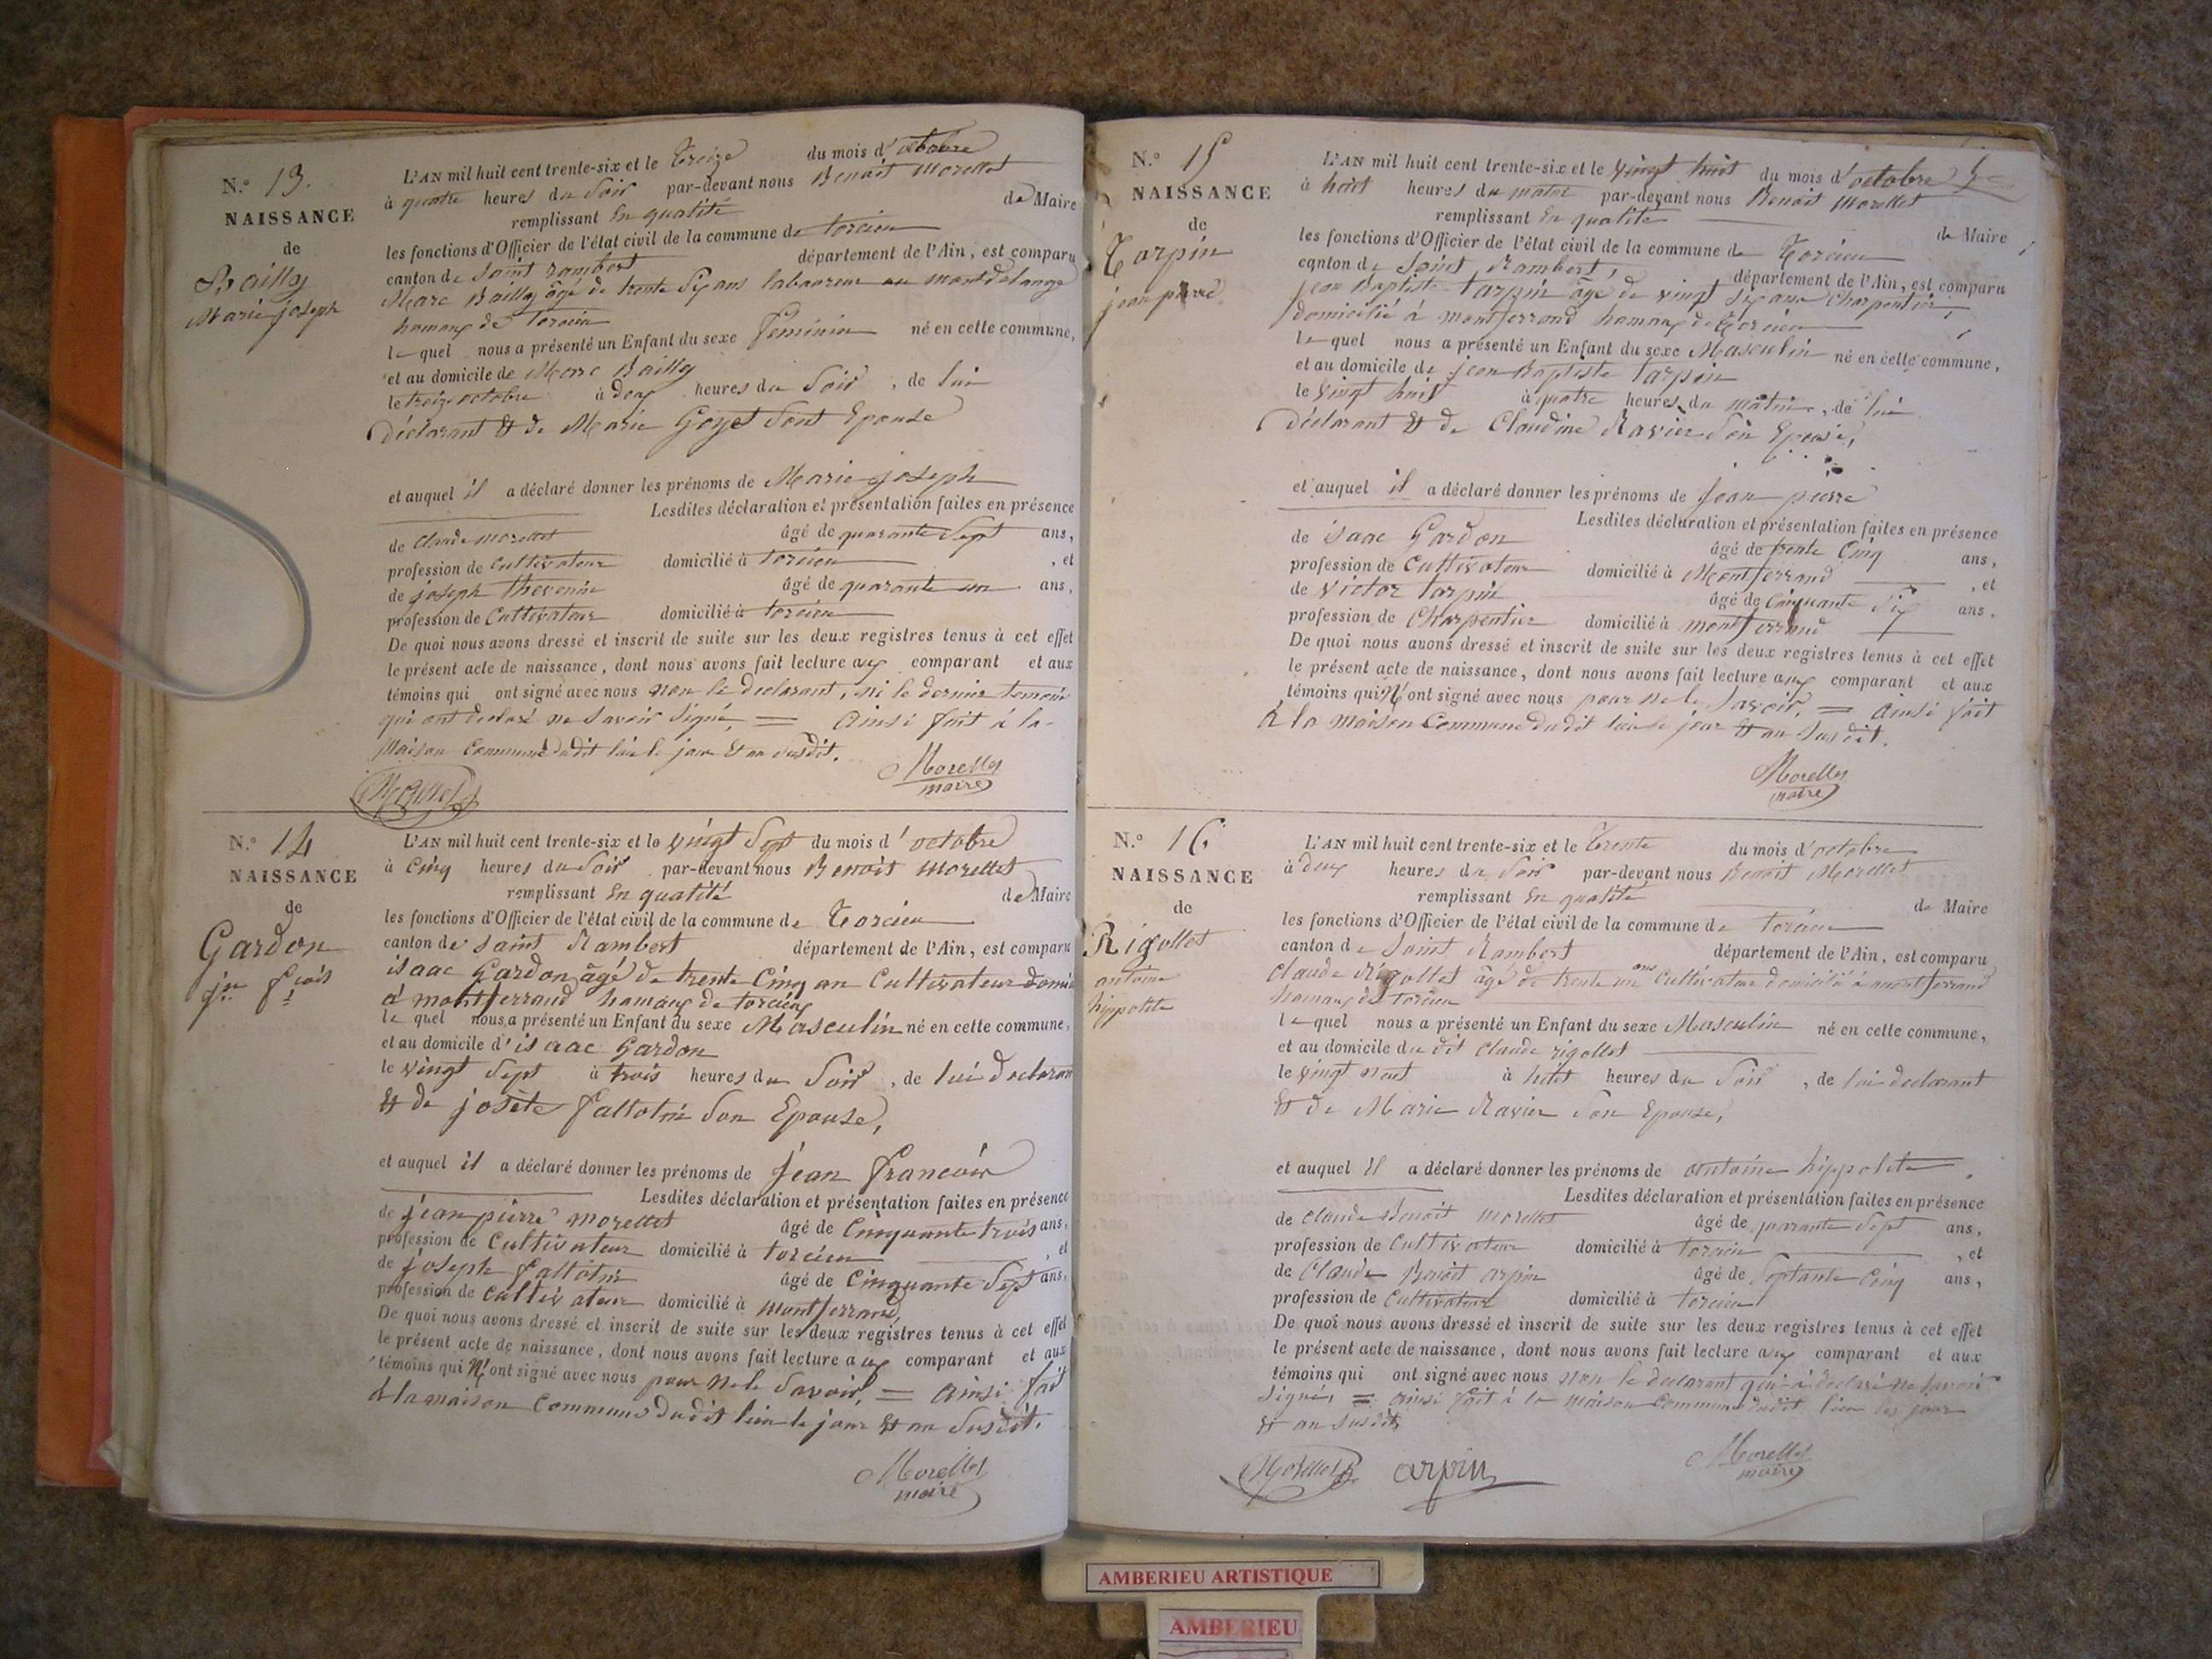 N.° 13.
NAISSANCE
de
Bailly
Marie joseph
L'AN mil huit cent trente-six et le treize du mois d'octobre
à quatre heures du Soir par-devant nous Benoit Morellet
remplissant En qualité de Maire
les fonctions d'Officier de l'état civil de la commune de torcieu
canton de Saint rambert département de l'Ain, est comparu
Marc Bailly âgé de trente Six ans laboureur au
hamaux de torcieu
le quel nous a présenté un Enfant du sexe feminin né en cette commune,
et au domicile de Marc Bailly
le treize octobre à deux heures du Soir, de lui
déclarant & de Marie Goyet Sont Epouse
et auquel il a déclaré donner les prénoms de Marie joseph
Lesdites déclaration et présentation faites en présence
de Claude morellet âgé de quarante Sept ans,
profession de Cultivateur domicilié à torcieu, et
de joseph thevenin âgé de quarante un ans,
profession de Cultivateur domicilié à torcieu
De quoi nous avons dressé et inscrit de suite sur les deux registres tenus à cet effet
le présent acte de naissance, dont nous avons fait lecture aux comparant et aux
témoins qui ont signé avec nous non le declarant, ni le dernier temoin
qui ont declaré ne Savoir Signé, = Ainsi fait à la
Maison Commune dudit lieu le jour & an Susdit.
Morellet
Morellet
maire
N.° 14
NAISSANCE
de
Gardon
jn fcois
L'AN mil huit cent trente-six et le vingt Sept du mois d'octobre
à Cinq heures du Soir par-devant nous Benoit Morellet
remplissant En qualité de Maire
les fonctions d'Officier de l'état civil de la commune de Torcieu
canton de Saint Rambert département de l'Ain, est comparu
isaac Gardon âgé de trente Cinq an Cultivateur
à montferrand hamaux de torcieu
le quel nous a présenté un Enfant du sexe Masculin né en cette commune,
et au domicile d'isaac Gardon
le vingt Sept à trois heures du Soir, de lui declarant
& de josète fallotin Son Epouse,
et auquel il a déclaré donner les prénoms de jean francois
Lesdites déclaration et présentation faites en présence
de jean pierre morellet âgé de Cinquante trois ans,
profession de Cultivateur domicilié à torcieu, et
de joseph fallotin âgé de Cinquante Sept ans,
profession de Cultivateur domicilié à montferrand,
De quoi nous avons dressé et inscrit de suite sur les deux registres tenus à cet effet
le présent acte de naissance, dont nous avons fait lecture aux comparant et aux
témoins qui N'ont signé avec nous pour ne le Savoir, = Ainsi fait
à la maison Commune dudit lieu le jour & an Susdit.
Morellet
maire
N.° 15
NAISSANCE
de
Tarpin
jean pierre
L'AN mil huit cent trente-six et le vingt huit du mois d'octobre
à huit heures du matin par-devant nous Benoit Morellet
remplissant En qualité de Maire
les fonctions d'Officier de l'état civil de la commune de Torcieu
canton de Saint Rambert, département de l'Ain, est comparu
jean Baptiste tarpin âgé de vingt Six ans Charpentier,
domicilié à montferrand hamaux de torcieu
le quel nous a présenté un Enfant du sexe Masculin né en cette commune,
et au domicile de jean Baptiste tarpin
le vingt huit à quatre heures du matin, de lui
déclarant & de Claudine Ravier Son Epouse,
et auquel il a déclaré donner les prénoms de jean pierre
Lesdites déclaration et présentation faites en présence
de isaac Gardon âgé de trente Cinq ans,
profession de Cultivateur domicilié à Montferrand, et
de victor tarpin âgé de Cinquante Six ans,
profession de Charpentier domicilié à montferrand
De quoi nous avons dressé et inscrit de suite sur les deux registres tenus à cet effet
le présent acte de naissance, dont nous avons fait lecture aux comparant et aux
témoins qui N'ont signé avec nous pour ne le Savoir, = Ainsi fait
à la maison Commune dudit lieu le jour & an Susdit.
Morellet
maire
N.° 16
NAISSANCE
de
Rigollet
antoine
hippolite
L'AN mil huit cent trente-six et le trente du mois d'octobre
à deux heures du Soir par-devant nous Benoit Morellet
remplissant En qualité de Maire
les fonctions d'Officier de l'état civil de la commune de torcieu
canton de Saint Rambert département de l'Ain, est comparu
Claude Rigollet âgé de trente un ans Cultivateur domicilié à montferrand
hamaux de torcieu
le quel nous a présenté un Enfant du sexe Masculin né en cette commune,
et au domicile du dit Claude rigollet
le vingt neuf à huit heures du Soir, de lui declarant
& de Marie Ravier Son Epouse,
et auquel il a déclaré donner les prénoms de antoine hippolite
Lesdites déclaration et présentation faites en présence
de Claude Benoit morellet âgé de quarante Sept ans,
profession de Cultivateur domicilié à torcieu, et
de Claude Benoit arpin âgé de Septante Cinq ans,
profession de Cultivateur domicilié à torcieu
De quoi nous avons dressé et inscrit de suite sur les deux registres tenus à cet effet
le présent acte de naissance, dont nous avons fait lecture aux comparant et aux
témoins qui ont signé avec nous non le declarant qui à declaré ne Savoir
Signé, = Ainsi fait à la maison Commune dudit lieu les jour
& an susdits
Morellet arpin
Morellet
maire
AMBERIEU ARTISTIQUE
AMBERIEU